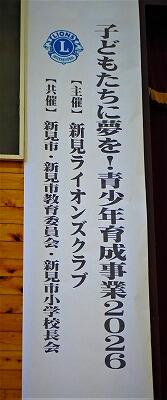 子どもたちに夢を!青少年育成事業2026
【主催】新見ライオンズクラブ
【共催】新見市・新見市教育委員会・新見市小学校長会
LIONS
L